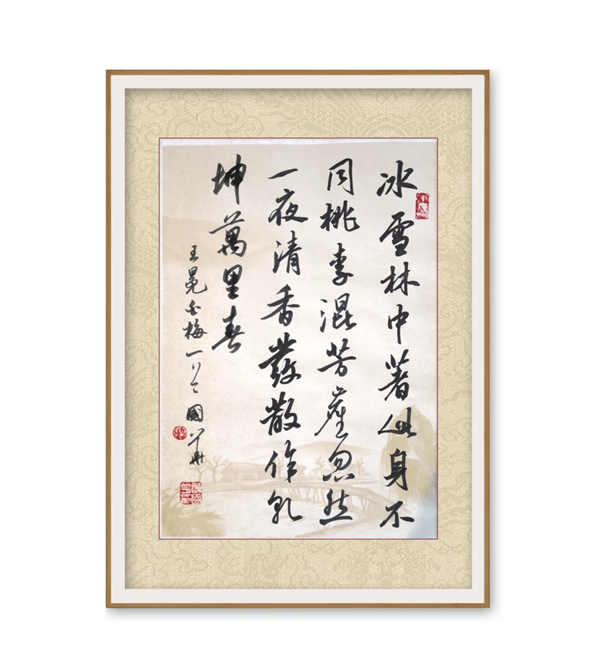 冰雪林中著此身不
同桃李混芳塵忽然
一夜清香發散作乾
坤萬里春
王冕白梅 國華